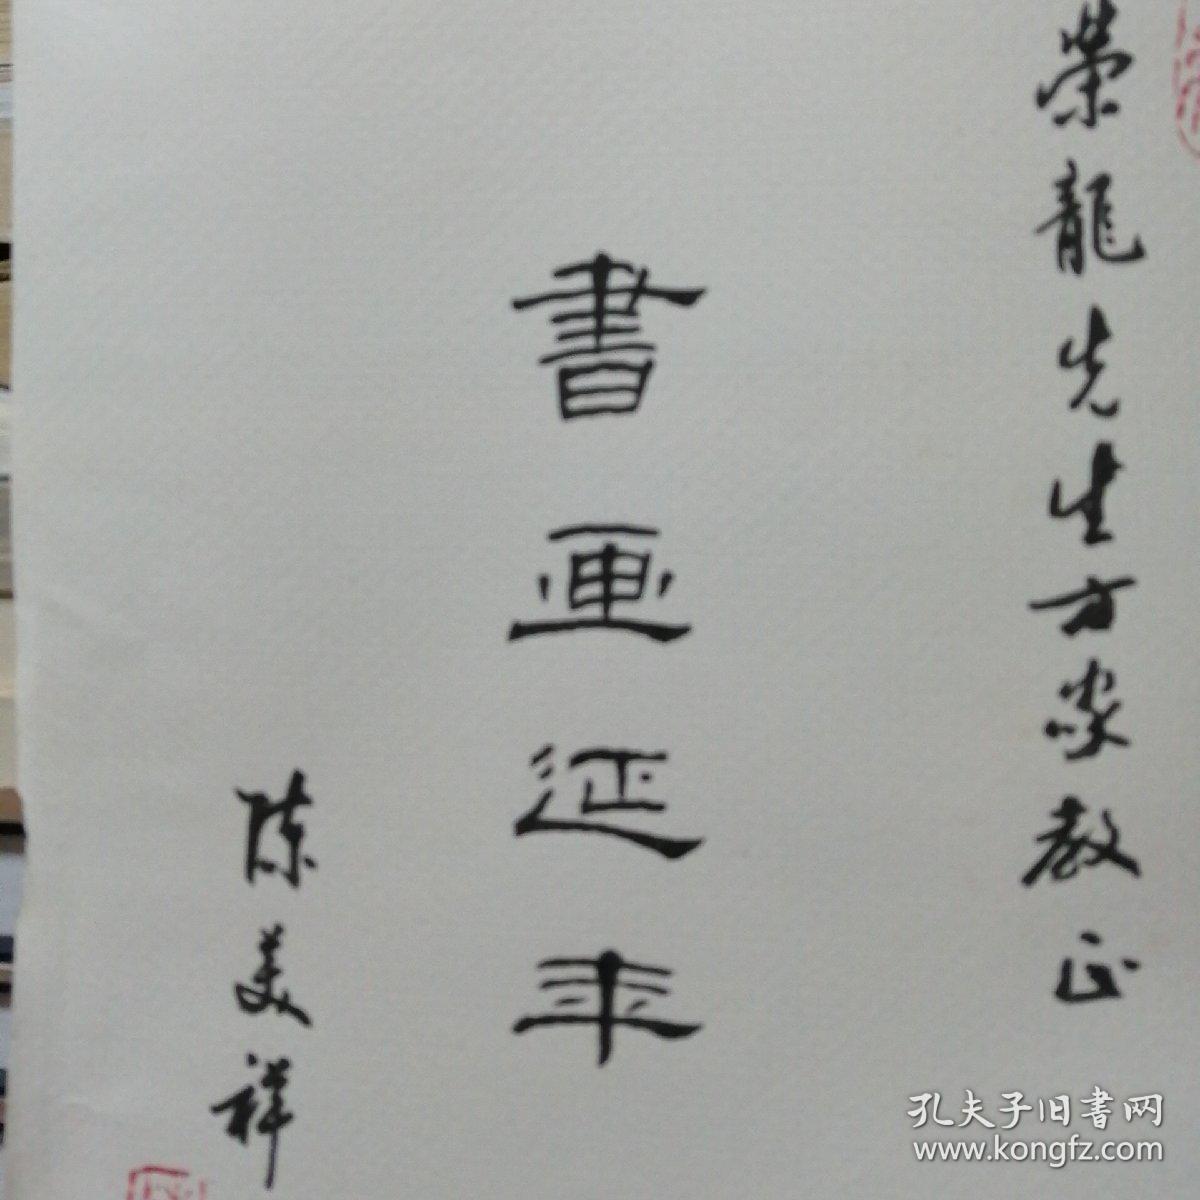 榮龍先生方家教正
書画延年
陈美祥
孔夫子旧書网
www.kongfz.com